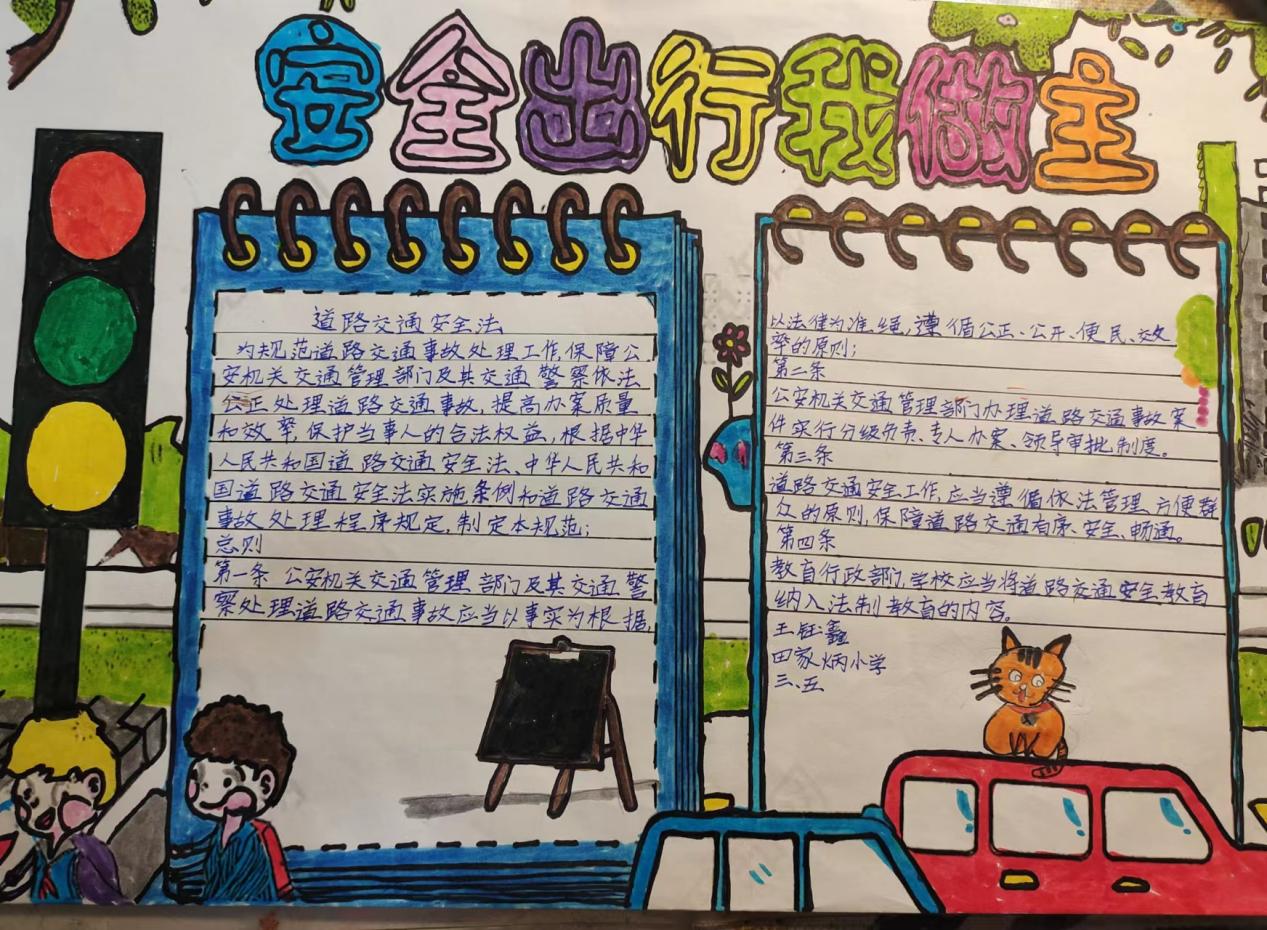 安全出行我做主
道路交通安全法
为规范道路交通事故处理工作,保障公
安机关交通管理部门及其交通警察依法
公正处理道路交通事故,提高办案质量
和效率,保护当事人的合法权益,根据中华
人民共和国道路交通安全法、中华人民共和
国道路交通安全法实施条例和道路交通
事故处理程序规定,制定本规范;
总则
第一条 公安机关交通管理部门及其交通警
察处理道路交通事故应当以事实为根据,
以法律为准绳,遵循公正、公开、便民、效
率的原则;
第二条
公安机关交通管理部门办理道路交通事故案
件实行分级负责、专人办案、领导审批制度。
第三条
道路交通安全工作,应当遵循依法管理、方便群
众的原则,保障道路交通有序、安全、畅通。
第四条
教育行政部门、学校应当将道路交通安全教育
纳入法制教育的内容。
王钰鑫
田家炳小学
三、五